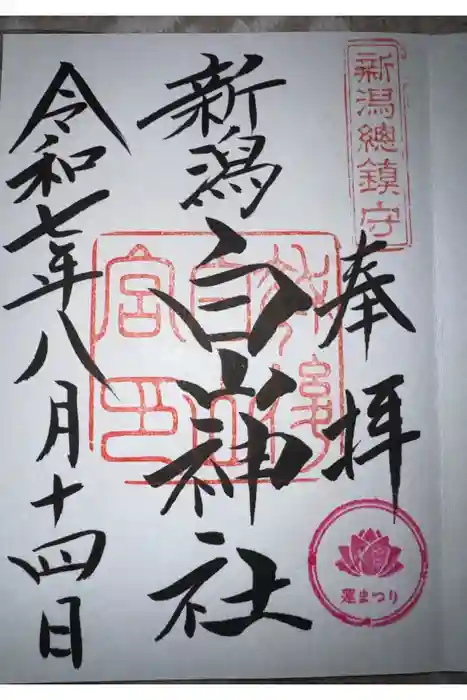 新潟總鎮守
奉拝
蓮まつり
新潟白山神社
白山
宮印
令和七年八月十四日